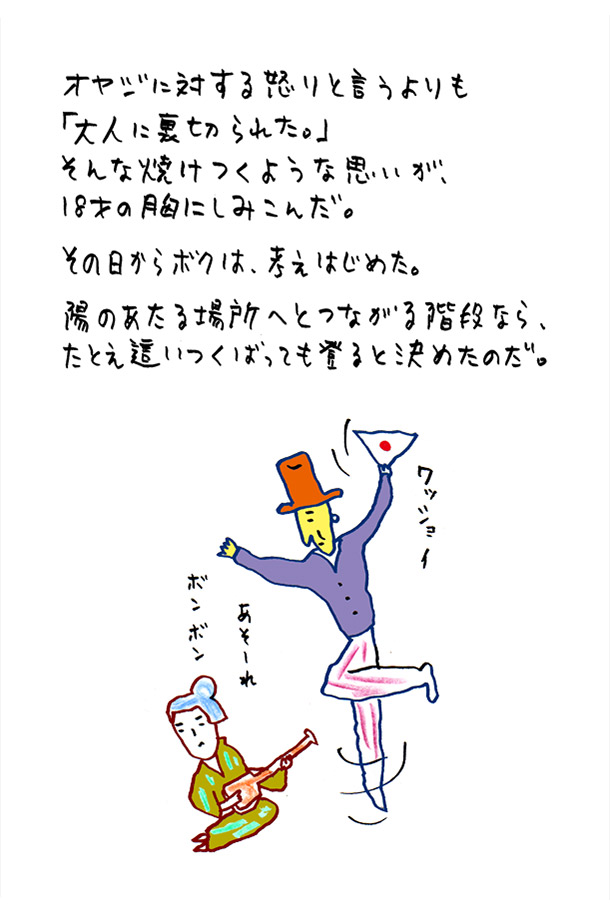 オヤジに対する怒りと言うよりも
「大人に裏切られた。」
そんな焼けつくような思いが、
18才の胸にしみこんだ。
その日からボクは、考えはじめた。
陽のあたる場所へとつながる階段なら、
たとえ這いつくばっても登ると決めたのだ。
ワッショイ
あそーれ
ボンボン